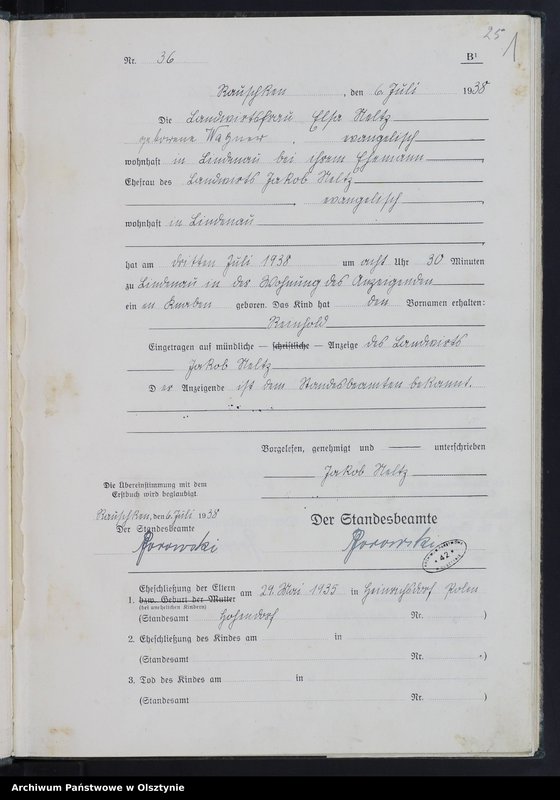 25
1
Nr. 36 B¹
Rauschken, den 6. Juli 1938
Die Landwirtsfrau Elsa Neltz
geborene Wagner, evangelisch
wohnhaft in Lindenau bei ihrem Ehemann,
Ehefrau des Landwirts Jakob Neltz
, evangelisch
wohnhaft in Lindenau
,
hat am dritten Juli 1938 um acht Uhr 30 Minuten
zu Lindenau in der Wohnung des Anzeigenden
ein en Knaben geboren. Das Kind hat den Vornamen erhalten:
Reinhold
Eingetragen auf mündliche — schriftliche — Anzeige des Landwirts
Jakob Neltz
D er Anzeigende ist dem Standesbeamten bekannt.
Vorgelesen, genehmigt und unterschrieben
Jakob Neltz
Die Übereinstimmung mit dem
Erstbuch wird beglaubigt.
Rauschken, den 6. Juli 1938
Der Standesbeamte
Borowski
Der Standesbeamte
Borowski
42
1. Eheschließung der Eltern am 29. Mai 1935 in Heinrichsdorf Polen
bzw. Geburt der Mutter
(bei unehelichen Kindern)
(Standesamt Hohendorf Nr. )
2. Eheschließung des Kindes am in
(Standesamt Nr. )
3. Tod des Kindes am in
(Standesamt Nr. )
Archiwum Państwowe w Olsztynie